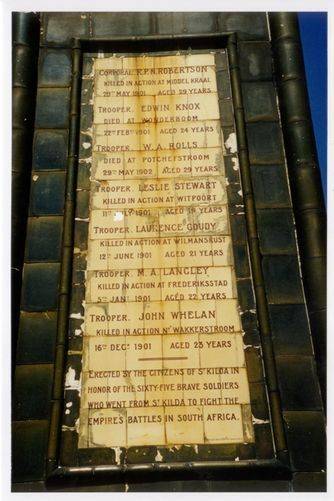 CORPORAL R.P.N. ROBERTSON
KILLED IN ACTION AT MIDDEL KRAAL
MAY 1901 AGED 29 YEARS
TROOPER EDWIN KNOX
DIED AT WONDERBOOM
22ND FEBY 1901 AGED 24 YEARS
TROOPER W.A. ROLLS
DIED AT POTCHEFSTROOM
29TH MAY 1902 AGED 29 YEARS
TROOPER LESLIE STEWART
KILLED IN ACTION AT WITPOORT
JULY 1901 AGED YEARS
TROOPER LAURENCE GOUDY
KILLED IN ACTION AT WILMANSRUST
12TH JUNE 1901 AGED 21 YEARS
TROOPER M.A. LANGLEY
KILLED IN ACTION AT FREDERIKSSTAD
5TH JANY 1901 AGED 22 YEARS
TROOPER JOHN WHELAN
KILLED IN ACTION NR WAKKERSTROOM
16TH DECR 1901 AGED 23 YEARS
ERECTED BY THE CITIZENS OF ST KILDA IN
HONOR OF THE SIXTY-FIVE BRAVE SOLDIERS
WHO WENT FROM ST KILDA TO FIGHT THE
EMPIRES BATTLES IN SOUTH AFRICA.